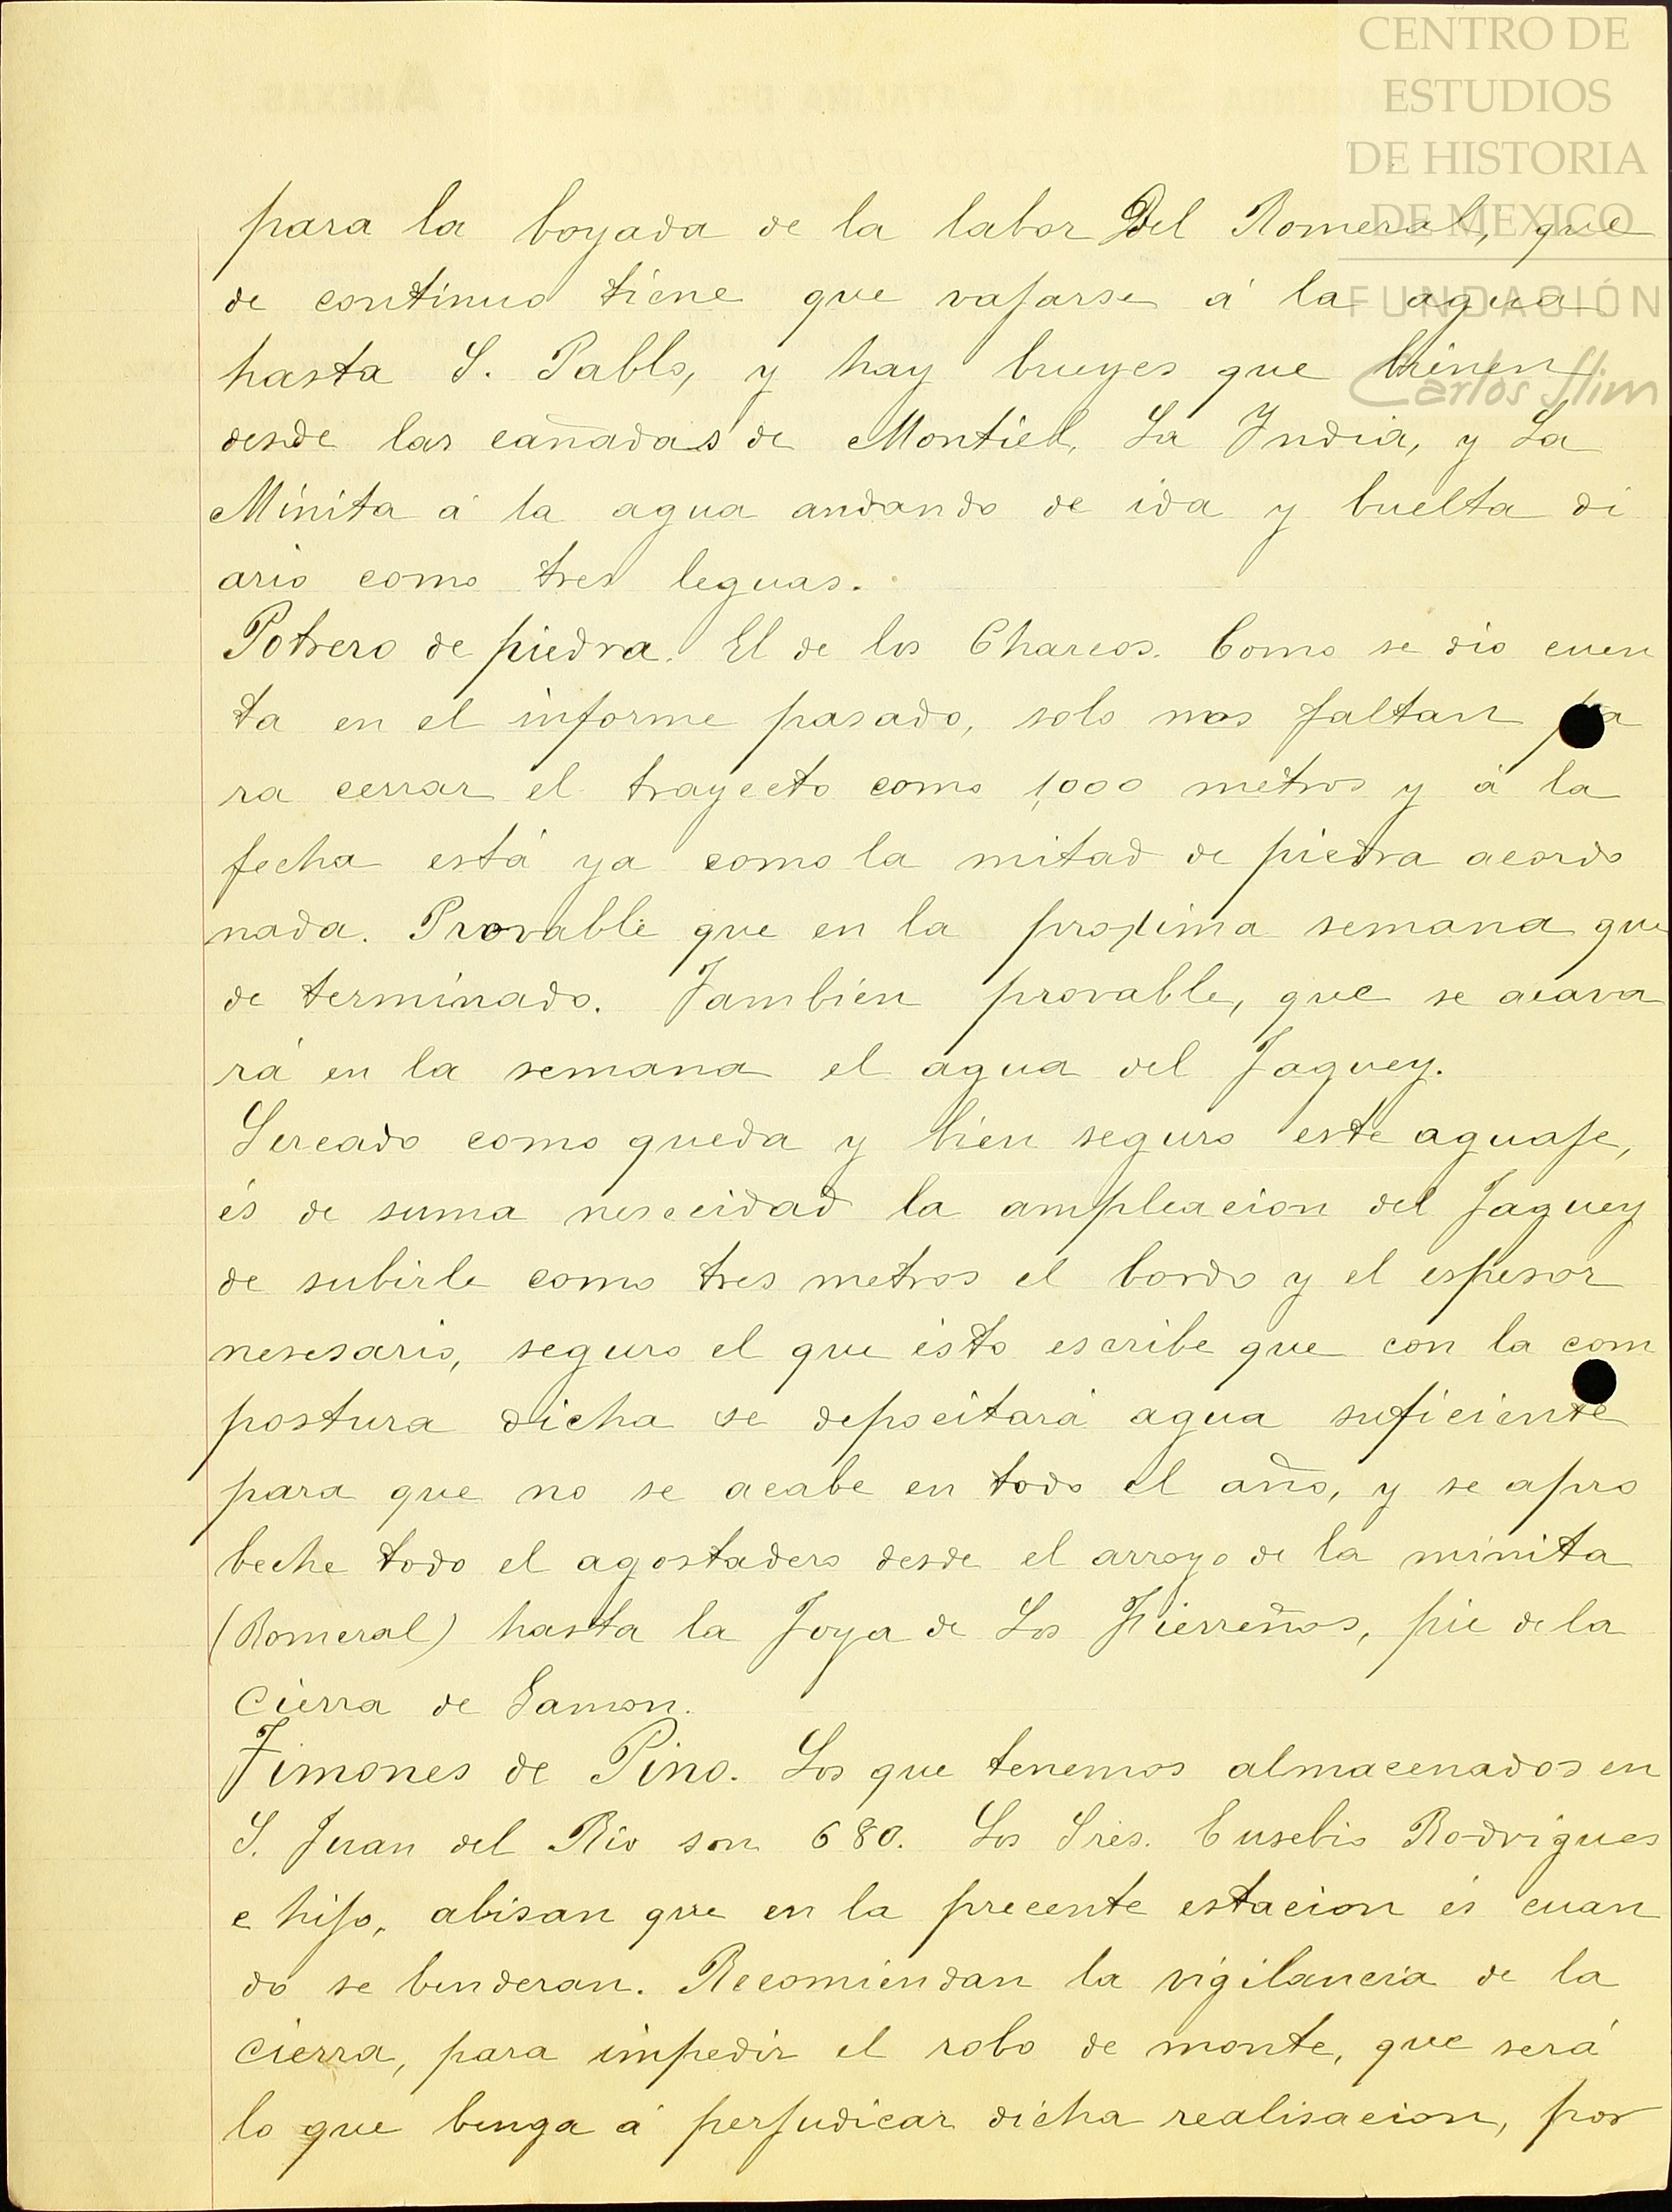 CENTRO DE
ESTUDIOS
DE HISTORIA
DE MEXICO
FUNDACIÓN
Carlos Slim
para la boyada de la labor Del Romeral, que
de continuo tiene que vajarse á la agua
hasta S. Pablo, y hay bueyes que bienen
desde las cañadas de Montiel, La India, y La
Minita á la agua andando de ida y buelta di
ario como tres leguas.
Potrero de piedra. El de los Charcos. Como se dio cuen
ta en el informe pasado, solo nos faltan pa
ra cerrar el trayecto como 1,000 metros y á la
fecha está ya como la mitad de piedra acordo
nada. Provable que en la proxima semana que
de terminado. Tambien provable, que se acava
rá en la semana el agua del Jaguey.
Sercado como queda y bien seguro este aguaje,
és de suma nescecidad la ampleacion del Jaguey
de subirle como tres metros el bordo y el espesor
nesesario, seguro el que ésto escribe que con la com
postura dicha se depocitará agua suficiente
para que no se acabe en todo el año, y se apro
beche todo el agostadero desde el arroyo de la minita
(Romeral) hasta la Joya de Los Fierreños, pie de la
Cierra de Gamon.
Timones de Pino. Los que tenemos almacenados en
S. Juan del Río son 680. Los Sres. Eusebio Rodrigues
e hijo, abisan que en la precente estacion és cuan
do se benderan. Recomiendan la vigilancia de la
cierra, para impedir el robo de monte, que será
lo que benga á perjudicar dicha realisacion, por